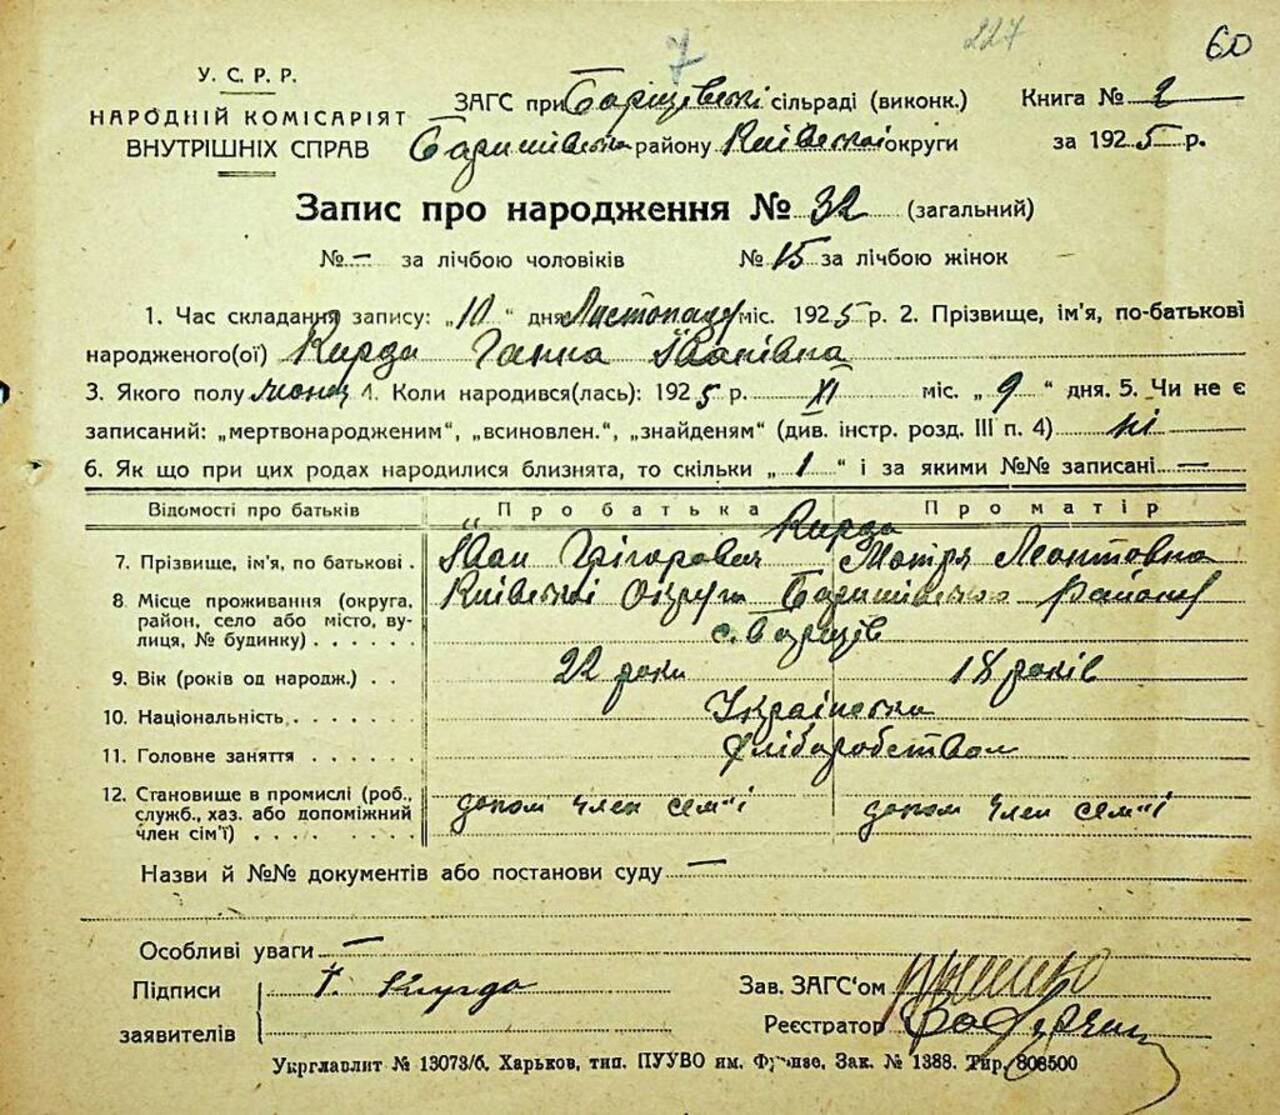 7 227 60
У. С. Р. Р.
НАРОДНІЙ КОМІСАРІЯТ
ВНУТРІШНІХ СПРАВ
ЗАГС при сільраді (виконк.) Книга № 2
району Київськоі округи за 1925 р.
Запис про народження № 32 (загальний)
№ — за лічбою чоловіків № 15 за лічбою жінок
1. Час складання запису: „10“ дня Листопаду міс. 1925 р. 2. Прізвище, ім'я, по-батькові
народженого(ої) Кирда Ганна Іванівна
3. Якого полу 4. Коли народився(лась): 1925 р. XI міс. „9“ дня. 5. Чи не є
записаний: „мертвонародженим“, „всиновлен.“, „знайденям“ (див. інстр. розд. III п. 4) ні
6. Як що при цих родах народилися близнята, то скільки „1“ і за якими №№ записані —
Відомості про батьків Про батька Про матір
Кирда
7. Прізвище, ім'я, по батькові . Іван Грігорович Мотря Леонтовна
8 Місце проживання (округа, Київськоі Округи Баришівського Району
район, село або місто, ву-
лиця, № будинку) . . . . . . с.
9. Вік (років од народж.) . . 22 роки 18 років
10. Національність . . . . . . . Українська
11. Головне заняття . . . . . . хліборобством
12. Становище в промислі (роб., допом член сем'ї допом член сем'ї
служб., хаз. або допоміжний
член сім'ї) . . . . . . . .
Назви й №№ документів або постанови суду —
Особливі уваги —
Підписи Кирда Зав. ЗАГС'ом
заявителів Реєстратор
Укрглавлит № 13073/б. Харьков, тип. ПУУВО им. Фрунзе. Зак. № 1388. Тир. 808500